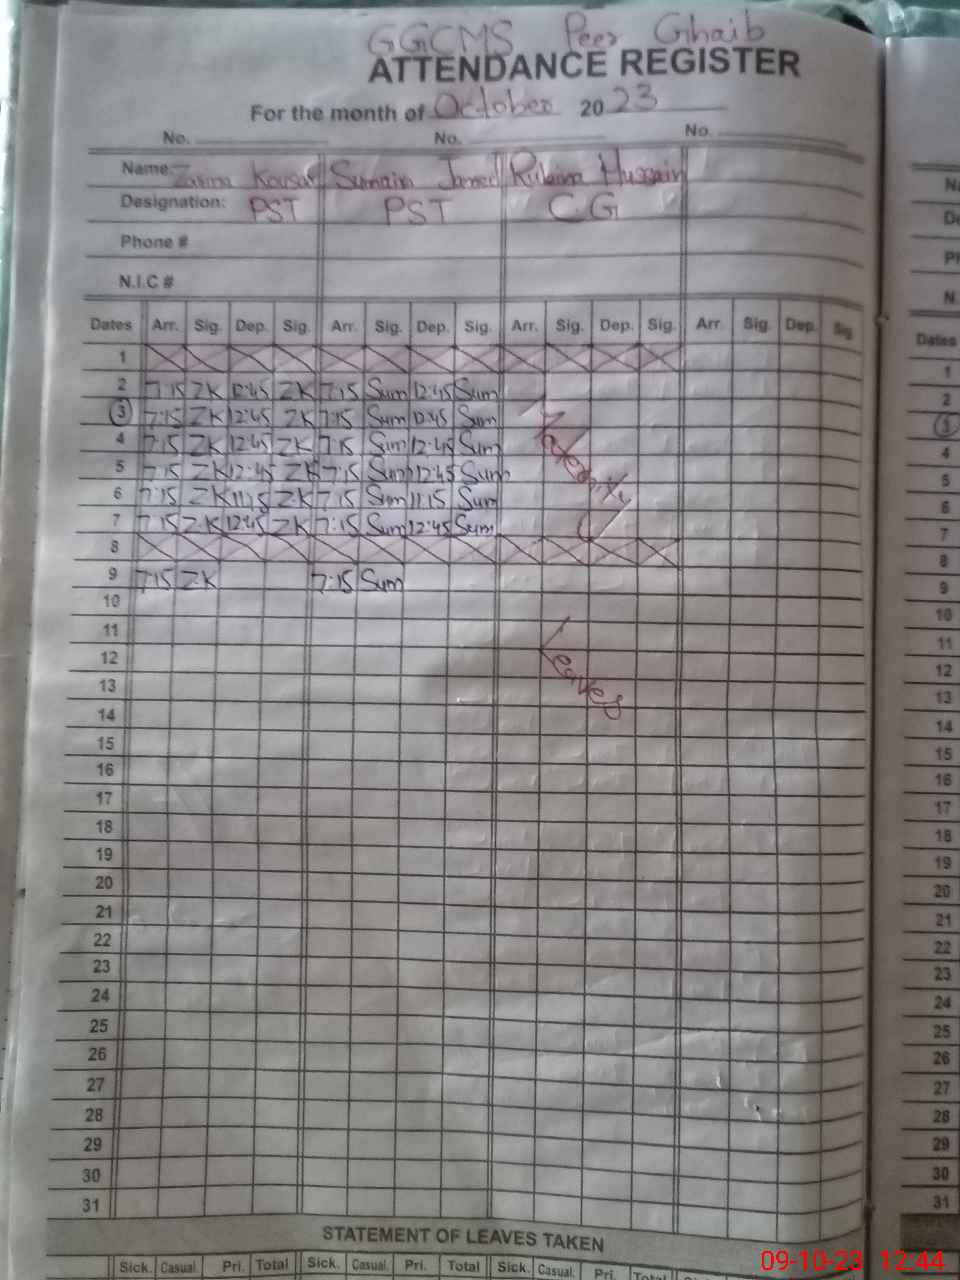 GGCMS Peer Ghaib
ATTENDANCE REGISTER
For the month of October 2023
No. No. No.
Name: Kousar Sumaira Jameel Rubina Hussain
Designation: PST PST CG
Phone #
N.I.C #
Dates Arr. Sig. Dep. Sig. Arr. Sig. Dep. Sig. Arr. Sig. Dep. Sig. Arr. Sig. Dep. Sig.
1
2 7:15 ZK 12:45 ZK 7:15 Sum 12:45 Sum
3 7:15 ZK 12:45 ZK 7:15 Sum 12:45 Sum
4 7:15 ZK 12:45 ZK 7:15 Sum 12:45 Sum
5 7:15 ZK 12:45 ZK 7:15 Sum 12:45 Sum
6 7:15 ZK 11:15 ZK 7:15 Sum 11:15 Sum
7 7:15 ZK 12:45 ZK 7:15 Sum 12:45 Sum
8
9 7:15 ZK 7:15 Sum
10
11
12
13
14
15
16
17
18
19
20
21
22
23
24
25
26
27
28
29
30
31
Leaves
STATEMENT OF LEAVES TAKEN
Sick. Casual. Pri. Total Sick. Casual. Pri. Total Sick. Casual. Pri. Total
Dates
1
2
3
4
5
6
7
8
9
10
11
12
13
14
15
16
17
18
19
20
21
22
23
24
25
26
27
28
29
30
31
09-10-23 12:44